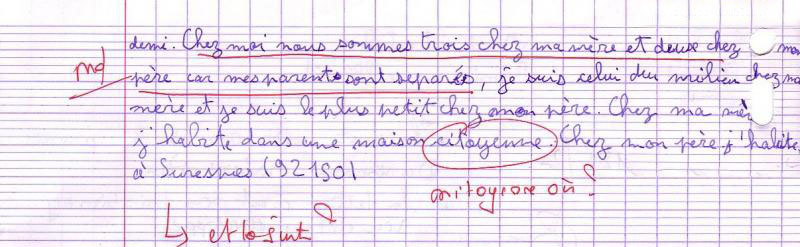 demi. Chez moi nous sommes trois chez ma mère et deuxe chez mon
md
père car mes parents sont separés, je suis celui du milieu chez ma
mère et je suis le plus petit chez mon père. Chez ma mère
j'habite dans une maison citoyenne. Chez mon père j'habite
à Suresnes (92150)
mitoyenne où?
↳ et